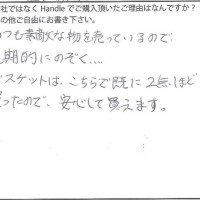 社ではなく Handle でご購入頂いたご理由はなんですか?
の他ご自由にお書き下さい。
つも素敵な物を売っているので、
期的にのぞく…。
スケットは、こちらで既に2点ほど
ったので、安心して買えます。